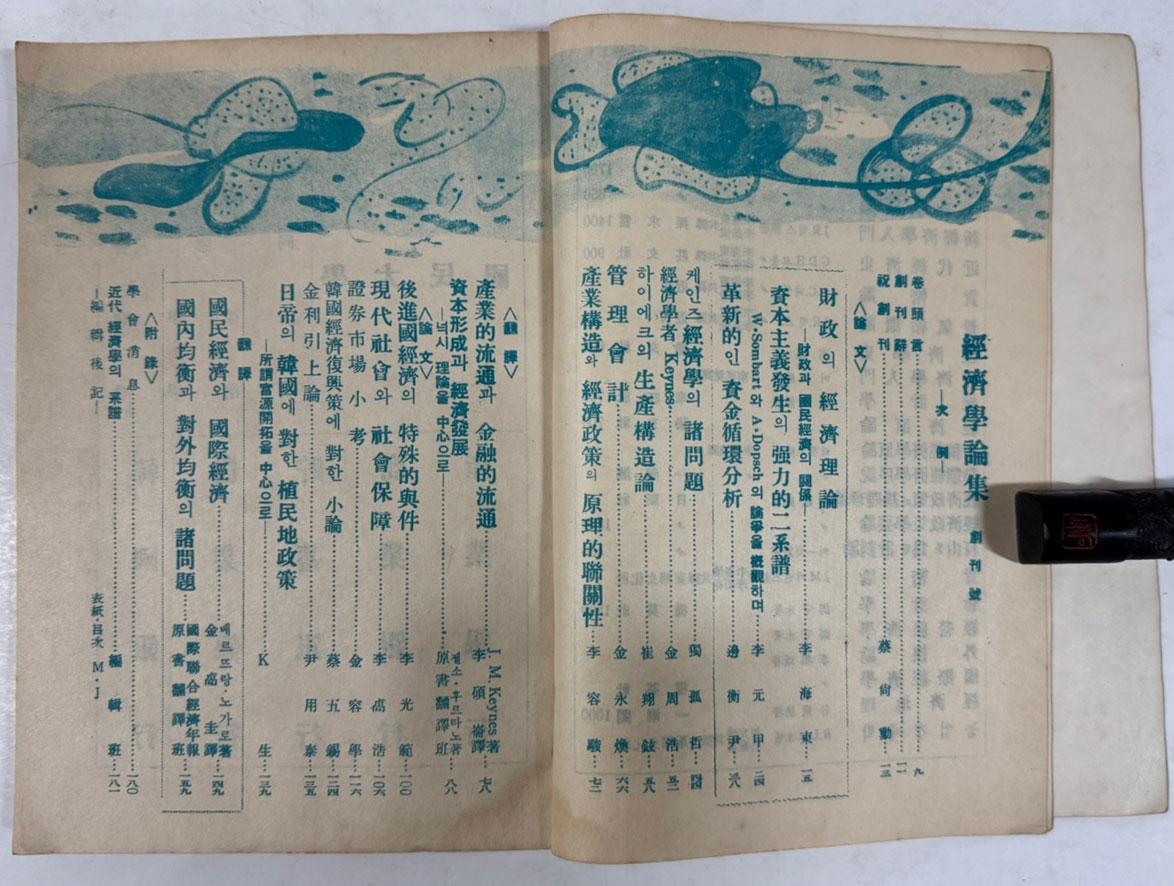 經濟學論集 創刊號
―次 例―
卷頭言……九
創刊辭……一一
祝創刊……蔡尙勳……一三
〈論文〉
財政의 經濟理論……李海東……一五
―財政과 國民經濟의 關係
資本主義發生의 强力的二系譜……李元甲……二四
W·Sombart와 A·Dopsch의 論爭을 槪觀하며
革新的인 資金循環分析……邊衡尹……二八
케인즈經濟學의 諸問題……獨孤哲……四四
經濟學者 Keynes……金周浩……五二
하이에크의 生產構造論……崔翔鉉……五八
管理會計……金永煥……六六
產業構造와 經濟政策의 原理的聯關性……李容駿……七二
〈飜譯〉
產業的流通과 金融的流通……J. M. Keynes著 李碩崙譯……七八
資本形成과 經濟發展……原書飜譯班……八八
―넉시 理論을 中心으로―
〈論文〉
後進國經濟의 特殊的與件……李光範……一〇〇
現代社會와 社會保障……李卨浩……一〇六
證券市場小考……金容學……一一六
韓國經濟復興策에 對한 小論……蔡五錫……一二四
金利引上論……尹用泰……一三五
日帝의 韓國에 對한 植民地政策……K生……一三九
―所謂富源開拓을 中心으로―
飜譯
國民經濟와 國際經濟……베르뜨랑·노가로著 金卨圭譯……一四九
國內均衡과 對外均衡의 諸問題……國際聯合經濟年報 原書飜譯班……一五九
〈附錄〉
學會消息……一八〇
近代經濟學의 系譜……編輯班……一八一
―編輯後記―
表紙·目次 M·J